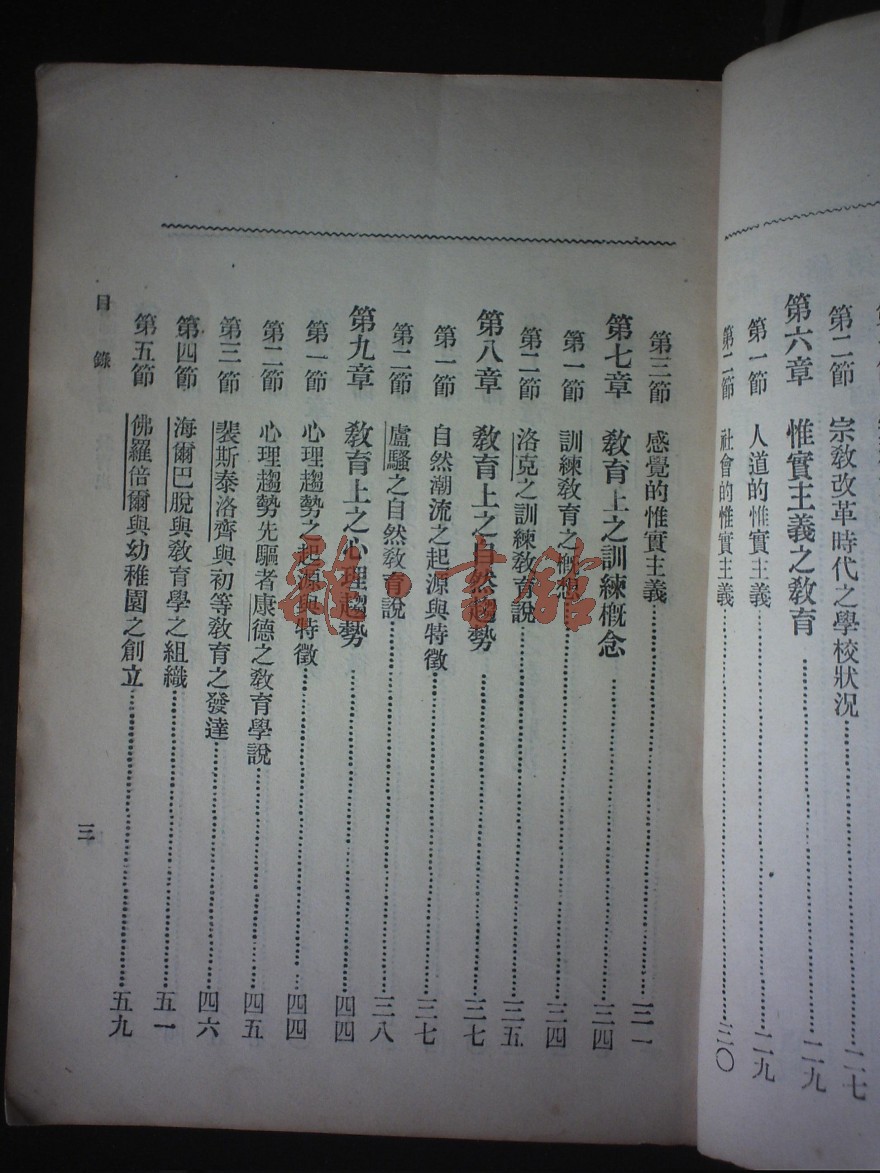 第二節 宗教改革時代之學校狀況……二七
第六章 惟實主義之教育……二九
第一節 人道的惟實主義……二九
第二節 社會的惟實主義……三〇
第三節 感覺的惟實主義……三一
第七章 教育上之訓練概念……三四
第一節 訓練教育之概想……三四
第二節 洛克之訓練教育說……三五
第八章 教育上之自然趨勢……三七
第一節 自然潮流之起源與特徵……三七
第二節 盧騷之自然教育說……三八
第九章 教育上之心理趨勢……四四
第一節 心理趨勢之起源與特徵……四四
第二節 心理趨勢先驅者康德之教育學說……四五
第三節 裴斯泰洛齊與初等教育之發達……四六
第四節 海爾巴脫與教育學之組織……五一
第五節 佛羅倍爾與幼稚園之創立……五九
目錄
三